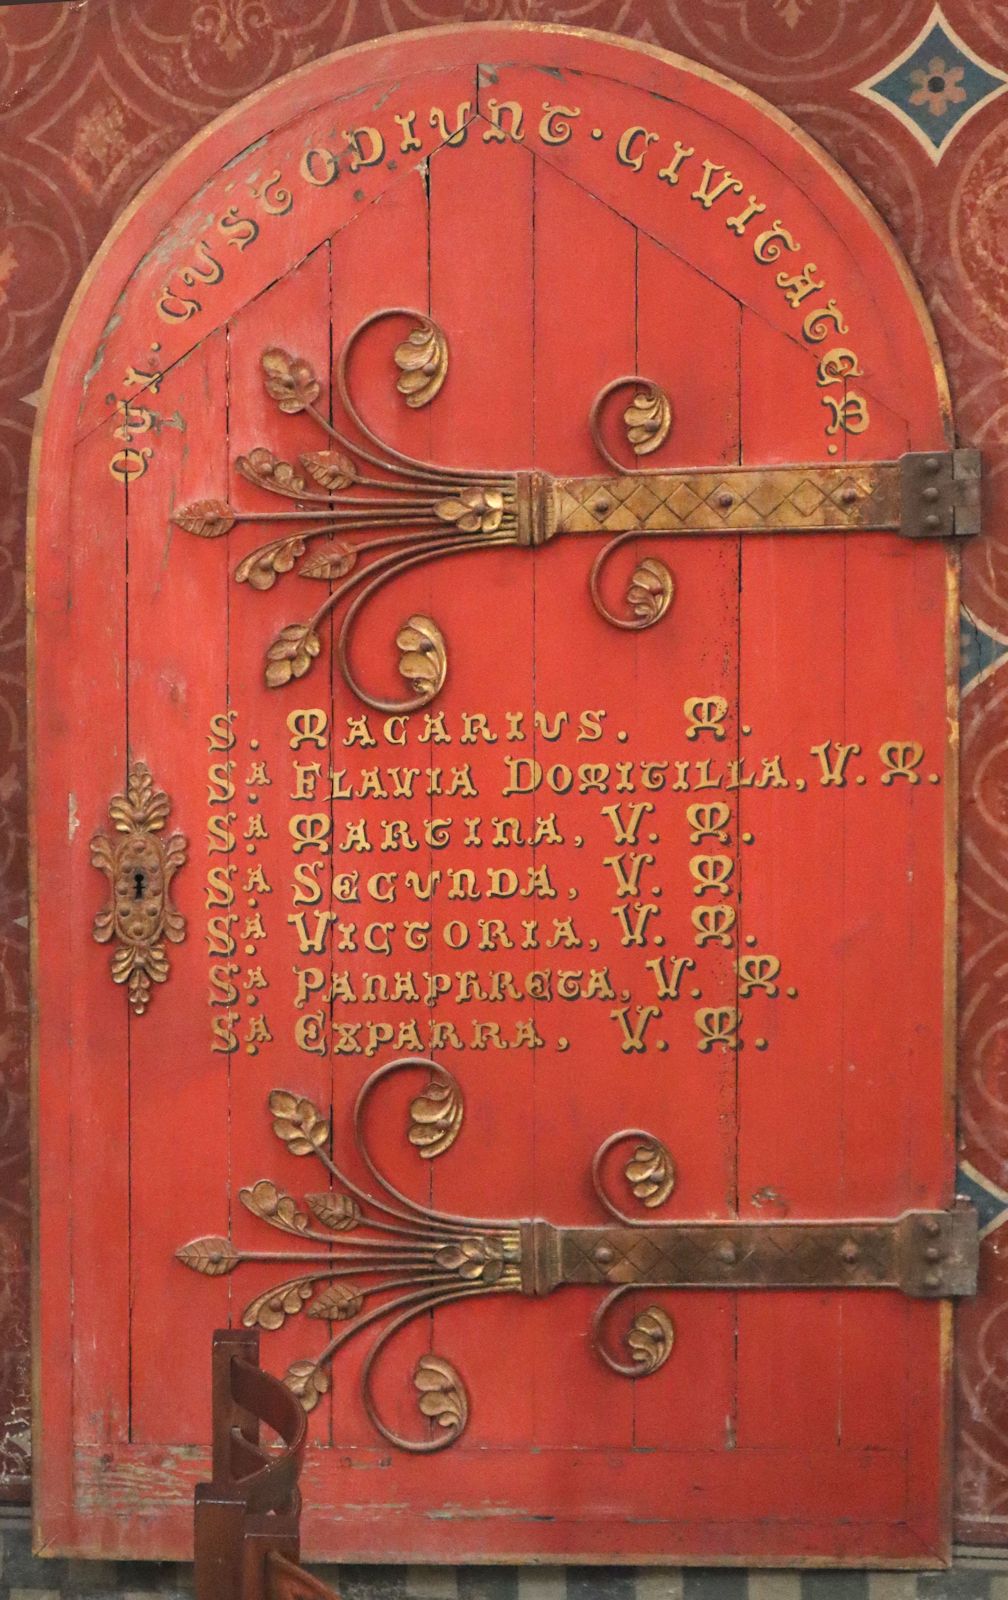 QUI · CUSTODIUNT · CIVITATEM ·
S. MACARIUS. M.
S.A FLAVIA DOMITILLA, V. M.
S.A MARTINA, V. M.
S.A SECUNDA, V. M.
S.A VICTORIA, V. M.
S.A PANAPHRETA, V. M.
S.A EXPARRA, V. M.